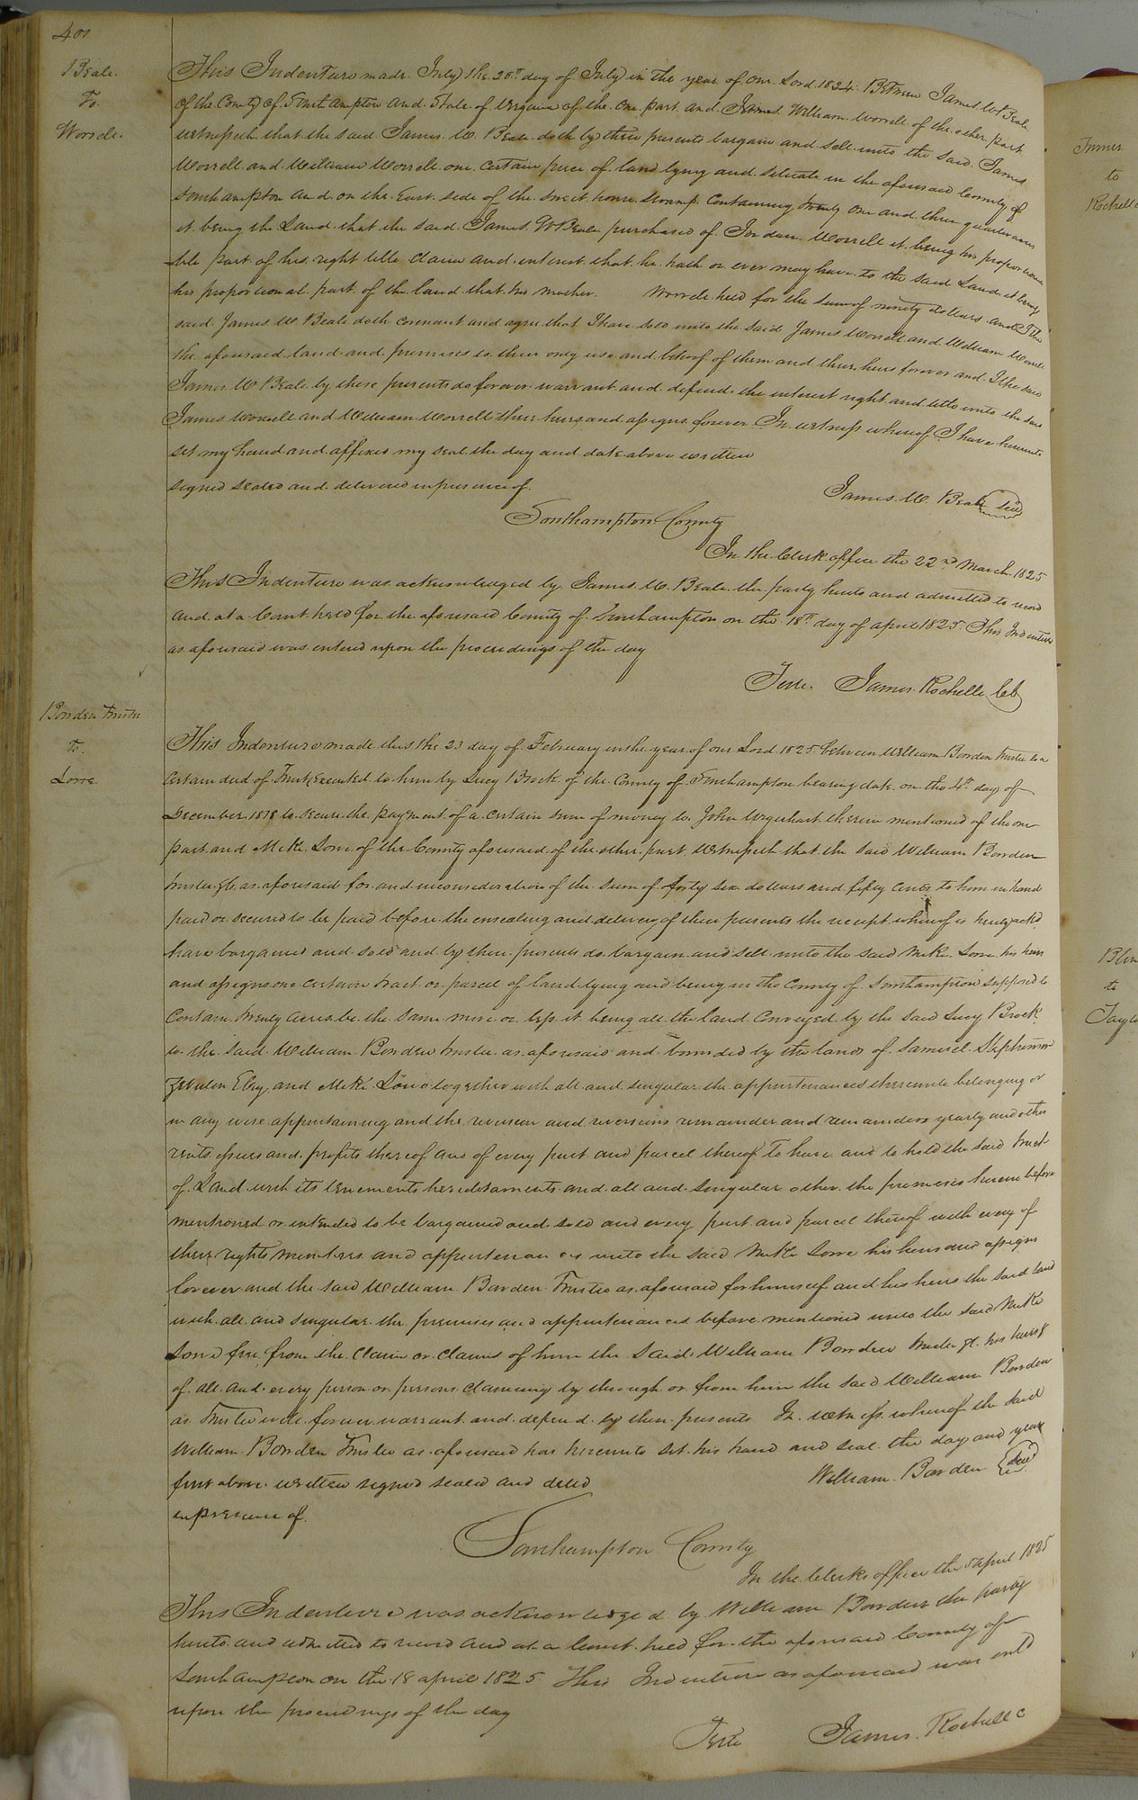 401
Beale
To
Worrele
This Indenture made July the 28th day of July in the year of our Lord 1824 Between James W Beale
of the County of Southampton and State of Virginia of the one part and James William Worrele of the other part
witnesseth that the said James W. Beale doth by these presents bargain and sell unto the said James
Worrell and William Worrele one certain piece of land lying and situate in the aforesaid County of
Southampton and on the East side of the house swamp Containing twenty one and three quarter acres
it being the Land that the said James W Beale purchased of Jordan Worrele it being his proportion
able part of his right title claim and interest that he hath or ever may have to the said Land it being
his proportional part of the land that his mother Worrele held for the sum of ninety dollars and I the
said James W. Beale doth covenant and agree that I have sold unto the said James Worrele and William Worrele
the aforesaid land and premises to their only use and behoof of them and their heirs forever and I the said
James W Beale by these presents do forever warrant and defend the interest right and title unto the said
James Worrele and William Worrele their heirs and assigns forever In witness whereof I have hereunto
set my hand and affixed my seal the day and date above written
signed sealed and delivered in presence of
James W. Beale seal
Southampton County
In the Clerk office the 22nd March 1825
This Indenture was acknowledged by James W. Beale the party hereto and admitted to record
and at a Court held for the aforesaid County of Southampton on the 18th day of april 1825 This Indenture
as aforesaid was entered upon the proceedings of the day
Teste James Rochelle Cl
Bowden Trustee
To
Love
This Indenture made this the 23 day of February in the year of our Lord 1825 between William Bowden trustee to a
certain deed of Trust executed to him by Lucy Brock of the County of Southampton bearing date on the 4th day of
December 1818 to secure the payment of a certain sum of money to John Urquhart therein mentioned of the one
part and Love of the County aforesaid of the other part Witnesseth that the said William Bowden
trustee &c as aforesaid for and in consideration of the sum of forty six dollars and fifty cents to him in hand
paid or secured to be paid before the ensealing and delivery of these presents the receipt whereof is hereby ackd
have bargained and sold and by these presents do bargain and sell unto the said Love his heirs
and assigns one certain tract or parcel of land lying and being in the County of Southampton supposed to
Contain twenty acres be the same more or less it being all the land Conveyed by the said Lucy Brock
to the said William Bowden trustee as aforesaid and bounded by the lands of Samuel Stephenson
and Love together with all and singular the appurtenances thereunto belonging or
in any wise appertaining and the reversion and reversions remainder and remainders yearly and other
rents issues and profits thereof and of every part and parcel thereof To have and to hold the said tract
of Land with its tenements hereditaments and all and singular other the premises herein before
mentioned or intended to be bargained and sold and every part and parcel thereof with every of
their rights members and appurtenances unto the said Love his heirs and assigns
forever and the said William Bowden Trustee as aforesaid for himself and his heirs the said land
with all and singular the premises and appurtenances before mentioned unto the said
Love free from the claim or claims of him the said William Bowden trustee &c his heirs &
of all and every person or persons claiming by through or from him the said William Bowden
as Trustee will forever warrant and defend by these presents In witness whereof the said
William Bowden Trustee as aforesaid has hereunto set his hand and seal the day and year
first above written signed sealed and delivd
in presence of
William Bowden seal
Southampton County
In the Clerks office the 5 April 1825
This Indenture was acknowledged by William Bowden the party
hereto and admitted to record and at a Court held for the aforesaid County of
Southampton on the 18 april 1825 This Indenture as aforesaid was entd
upon the proceedings of the day
Teste James Rochelle C
to
Rochelle
to